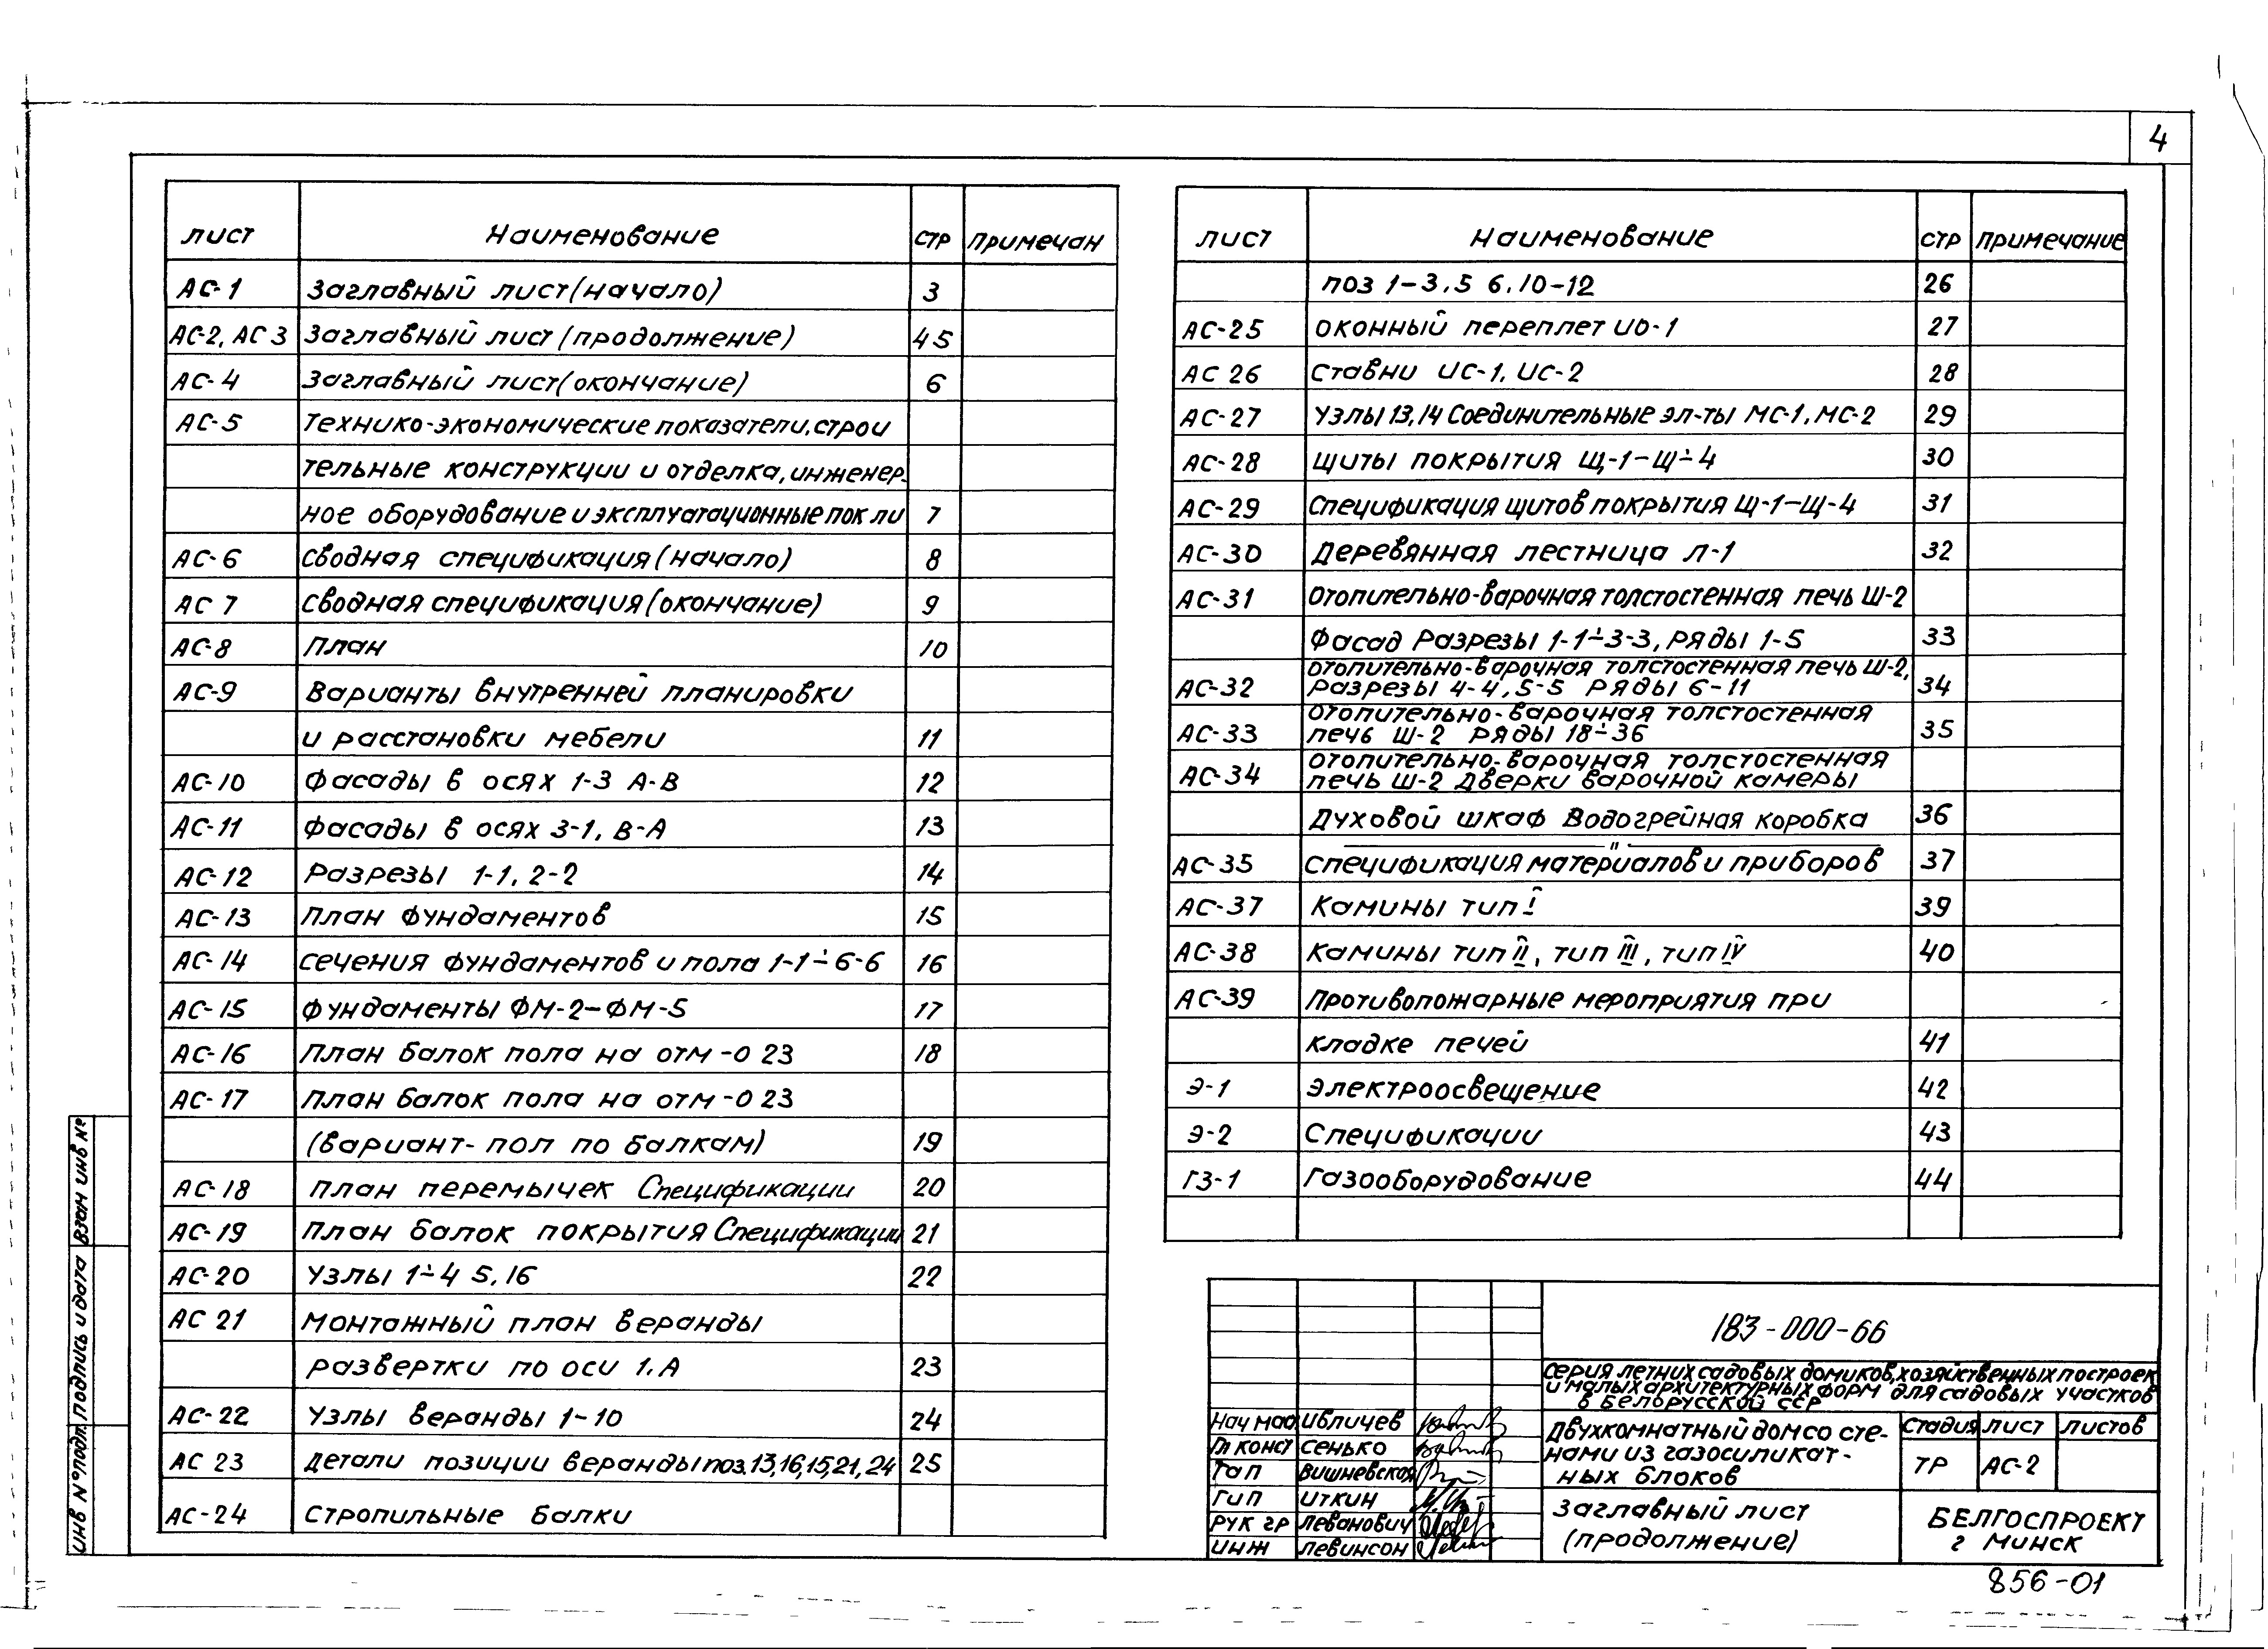 4
лист Наименование стр примечан
АС-1 Заглавный лист (начало) 3
АС-2, АС 3 Заглавный лист (продолжение) 4 5
АС-4 Заглавный лист (окончание) 6
АС-5 Технико-экономические показатели, строи
тельные конструкции и отделка, инженер-
ное оборудование и эксплуатационные пок ли 7
АС-6 Сводная спецификация (начало) 8
АС 7 Сводная спецификация (окончание) 9
АС-8 План 10
АС-9 Варианты внутренней планировки
и расстановки мебели 11
АС-10 Фасады в осях 1-3 А-В 12
АС-11 Фасады в осях 3-1, В-А 13
АС-12 Разрезы 1-1, 2-2 14
АС-13 План фундаментов 15
АС-14 Сечения фундаментов и пола 1-1÷6-6 16
АС-15 Фундаменты ФМ-2-ФМ-5 17
АС-16 План балок пола на отм -0 23 18
АС-17 План балок пола на отм -0 23
(вариант- пол по балкам) 19
АС-18 План перемычек Спецификации 20
АС-19 План балок покрытия Спецификации 21
АС-20 Узлы 1÷4 5, 16 22
АС 21 Монтажный план веранды
развертки по оси 1, А 23
АС-22 Узлы веранды 1-10 24
АС 23 Детали позиции веранды поз. 13, 16, 15, 21, 24 25
АС-24 Стропильные балки
лист Наименование стр примечание
поз 1-3, 5 6, 10-12 26
АС-25 Оконный переплет ИО-1 27
АС 26 Ставни ИС-1, ИС-2 28
АС-27 Узлы 13, 14 Соединительные эл-ты МС-1, МС-2 29
АС-28 Щиты покрытия Щ-1-Щ÷4 30
АС-29 Спецификация щитов покрытия Щ-1-Щ-4 31
АС-30 Деревянная лестница Л-1 32
АС-31 Отопительно-варочная толстостенная печь Ш-2
Фасад Разрезы 1-1÷3-3, ряды 1-5 33
АС-32 Отопительно-варочная толстостенная печь Ш-2,
Разрезы 4-4, 5-5 Ряды 6-11 34
АС-33 Отопительно-варочная толстостенная
печь Ш-2 Ряды 18÷36 35
АС-34 Отопительно-варочная толстостенная
печь Ш-2 Дверки варочной камеры
Духовой шкаф Водогрейная коробка 36
—"—
АС-35 Спецификация материалов и приборов 37
АС-37 Камины тип I 39
АС-38 Камины тип II, тип III, тип IV 40
АС-39 Противопожарные мероприятия при
кладке печей 41
Э-1 Электроосвещение 42
Э-2 Спецификации 43
ГЗ-1 Газооборудование 44
183-000-66
Серия летних садовых домиков, хозяйственных построек
и малых архитектурных форм для садовых участков
в Белорусской ССР
Нач мас Ибличев
Гл конст Сенько
Гап Вишневская
Гип Иткин
Рук гр Леванович
Инж Левинсон
Двухкомнатный дом со сте-
нами из газосиликат-
ных блоков
Стадия лист листов
ТР АС-2
Заглавный лист
(продолжение)
БЕЛГОСПРОЕКТ
г Минск
856-01
Инв № подл. Подпись и дата Взам инв №